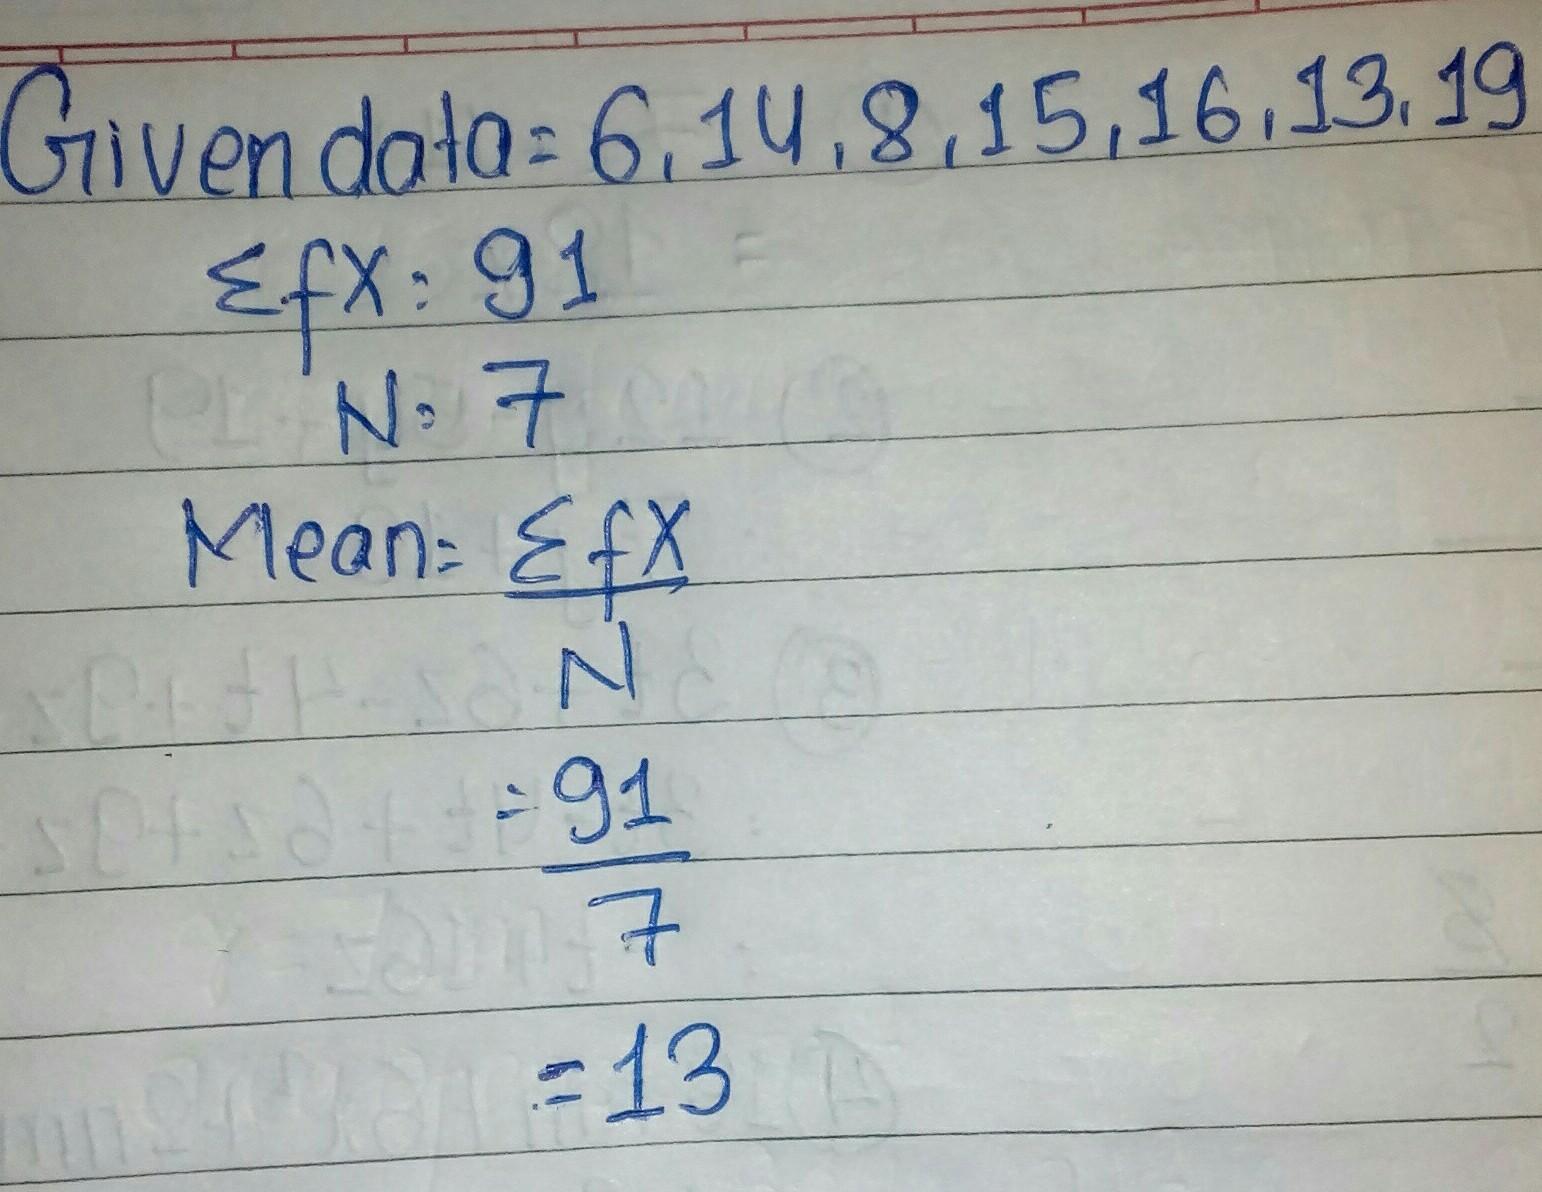 Given data = 6, 14, 8, 15, 16, 13, 19
Σfx = 91
N = 7
Mean = Σfx
N
= 91
7
= 13